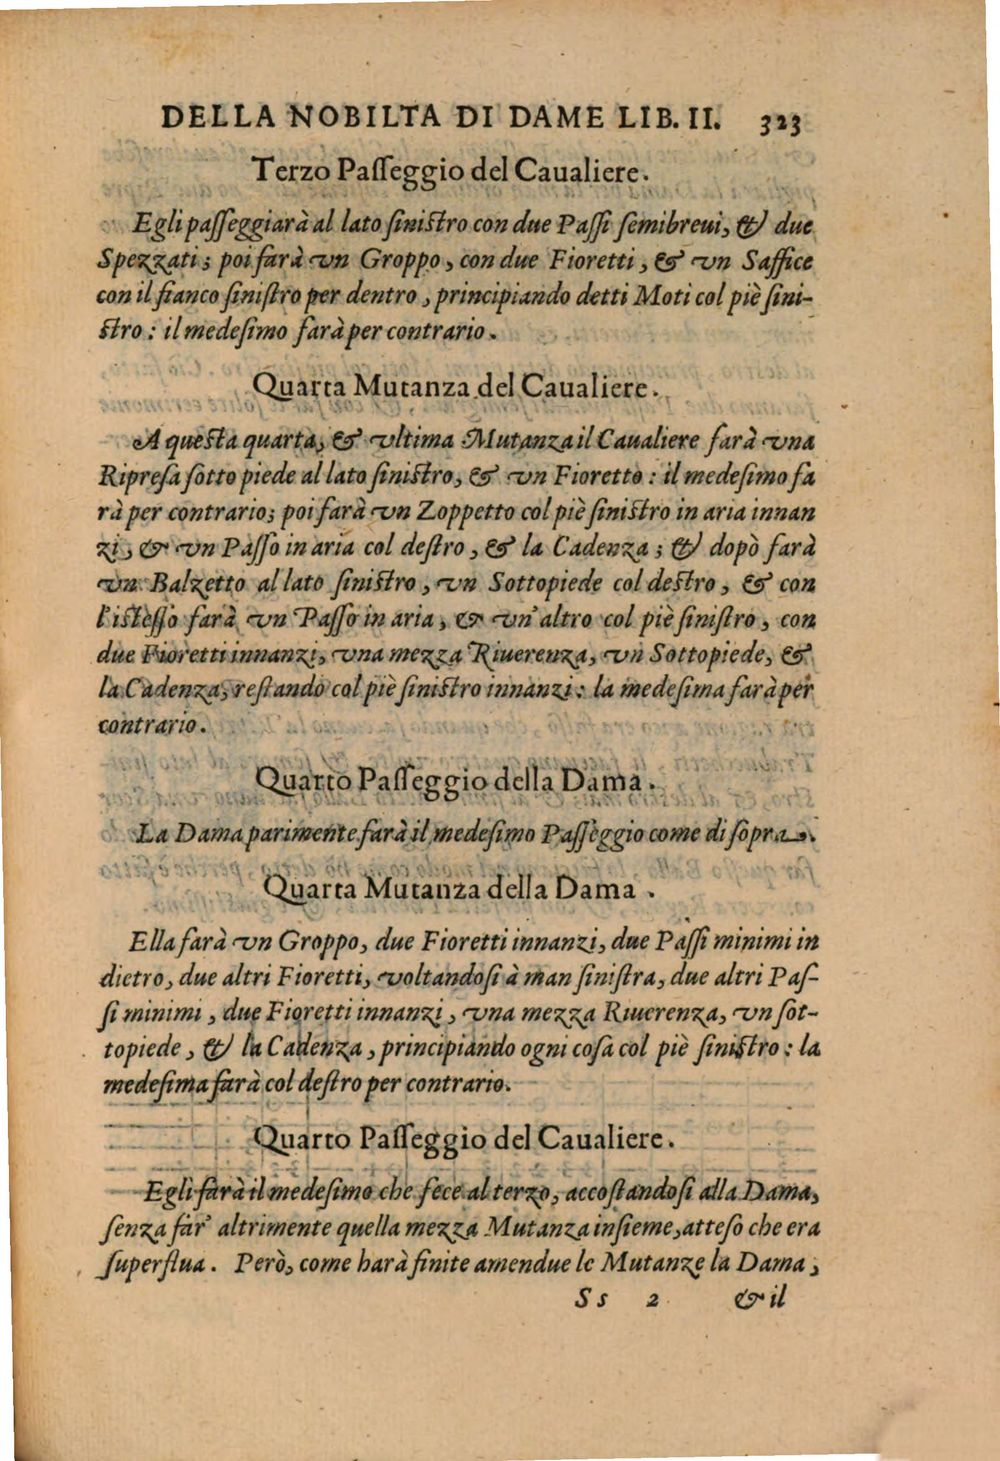 DELLA NOBILTA DI DAME LIB. II. 323
Terzo Paſſeggio del Caualiere.
Egli paſſeggiarà al lato ſiniſtro con due Paſſi ſemibreui, & due
Spezzati; poi farà vn Groppo, con due Fioretti, & vn Saffice
con il fianco ſiniſtro per dentro, principiando detti Moti col piè ſini-
ſtro: il medeſimo farà per contrario.
Quarta Mutanza del Caualiere.
A queſta quarta, & vltima Mutanza il Caualiere farà vna
Ripreſa ſotto piede al lato ſiniſtro, & vn Fioretto: il medeſimo fa
rà per contrario; poi farà vn Zoppetto col piè ſiniſtro in aria innan
zi, & vn Paſſo in aria col deſtro, & la Cadenza; & dopò farà
vn Balzetto al lato ſiniſtro, vn Sottopiede col deſtro, & con
l'iſteſſo farà vn Paſſo in aria, & vn'altro col piè ſiniſtro, con
due Fioretti innanzi, vna mezza Riuerenza, vn Sottopiede, &
la Cadenza, reſtando col piè ſiniſtro innanzi: la medeſima farà per
contrario.
Quarto Paſſeggio della Dama.
La Dama parimente farà il medeſimo Paſſeggio come di ſopra.
Quarta Mutanza della Dama.
Ella farà vn Groppo, due Fioretti innanzi, due Paſſi minimi in
dietro, due altri Fioretti, voltandoſi à man ſiniſtra, due altri Paſ-
ſi minimi, due Fioretti innanzi, vna mezza Riuerenza, vn ſot-
topiede, & la Cadenza, principiando ogni coſa col piè ſiniſtro: la
medeſima farà col deſtro per contrario.
Quarto Paſſeggio del Caualiere.
Egli farà il medeſimo che fece al terzo, accoſtandoſi alla Dama,
ſenza far' altrimente quella mezza Mutanza inſieme, atteſo che era
ſuperflua. Però, come harà finite amendue le Mutanze la Dama,
Ss 2 & il